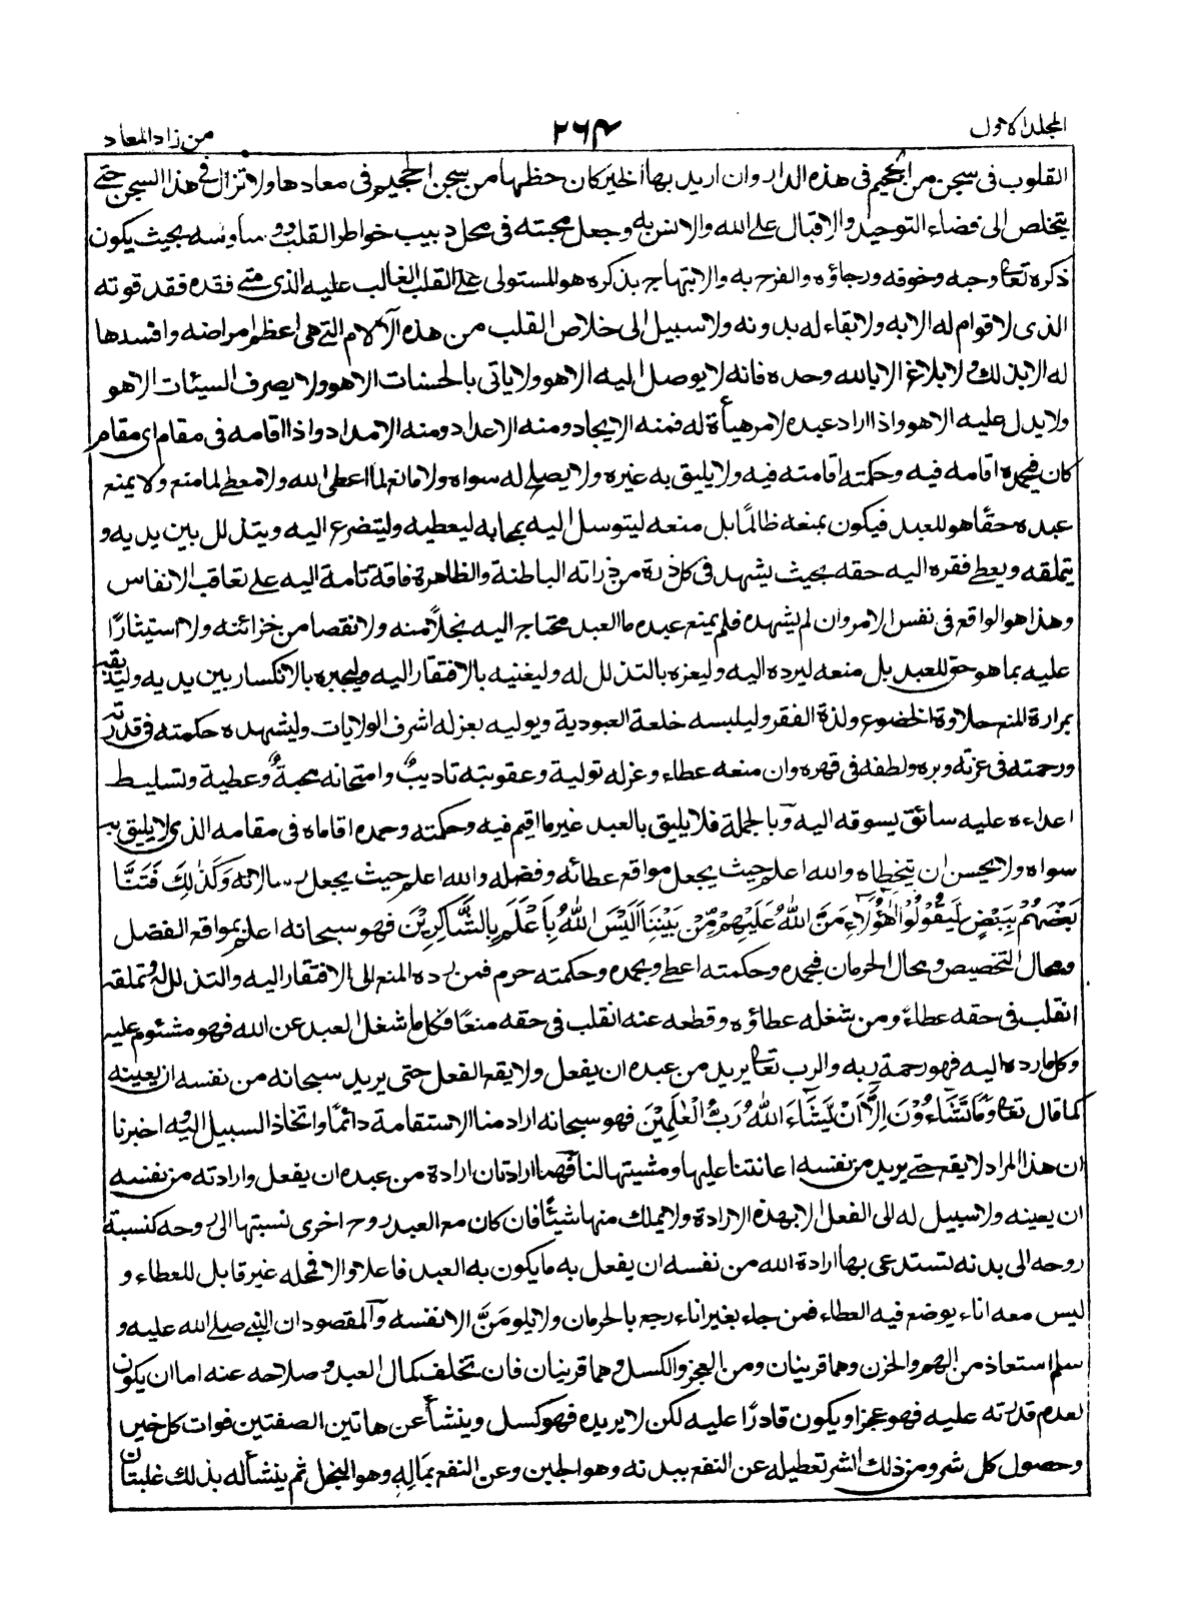 المجلد الاول
٢٦٤
من زاد المعاد
القلوب فى سجن من الجحيم فى هذه الدار وان اريد بها الخير كان حظها من سجن الجحيم فى معادها ولا تزال فى هذا السجن حتى
يتخلص الى فضاء التوحيد والاقبال على الله والانس به وجعل محبته فى محل دبيب خواطر القلب ووساوسه بحيث يكون
ذكره تعالى وحبه وخوفه ورجاؤه والفرح به والابتهاج بذكره هو المستولى على القلب الغالب عليه الذى متى فقده فقد قوته
الذى لا قوام له الا به ولا بقاء له بدونه ولا سبيل الى خلاص القلب من هذه الآلام التى هى اعظم امراضه وافسدها
له الا بذلك ولا بلاغ الا بالله وحده فانه لا يوصل اليه الا هو ولا ياتى بالحسنات الا هو ولا يصرف السيئات الا هو
ولا يدل عليه الا هو واذا اراد عبده لامر هيأه له فمنه الايجاد ومنه الاعداد ومنه الامداد واذا اقامه فى مقام اى مقام
كان فبحمده اقامه فيه وحكمته اقامته فيه ولا يليق به غيره ولا يصلح له سواه ولا مانع لما اعطى الله ولا معطى لما منع ولا يمنع
عبده حقا هو للعبد فيكون بمنعه ظالمًا بل منعه ليتوسل اليه بمحابه ليعطيه وليتضرع اليه ويتذلل بين يديه و
يتملقه ويعطى فقره اليه حقه بحيث يشهد فى كل ذرة من ذراته الباطنة والظاهرة فاقة تامة اليه على تعاقب الانفاس
وهذا هو الواقع فى نفس الامر وان لم يشهده فلم يمنع عبده ما العبد محتاج اليه بخلًا منه ولا نقصا من خزائنه ولا استيثارًا
عليه بما هو حق للعبد بل منعه ليرده اليه وليعزه بالتذلل له وليغنيه بالافتقار اليه وليجبره بالانكسار بين يديه وليذيقه
بمرارة المنع حلاوة الخضوع ولذة الفقر وليلبسه خلعة العبودية ويوليه بعزله اشرف الولايات وليشهده حكمته فى قدرته
ورحمته فى عزته وبره ولطفه فى قهره وان منعه عطاء وعزله تولية وعقوبته تاديبٌ وامتحانه محبةٌ وعطية وتسليط
اعداءه عليه سائق يسوقه اليه وبالجملة فلا يليق بالعبد غير ما اقيم فيه وحكمته وحمده اقاماه فى مقامه الذى لا يليق به
سواه ولا يحسن ان يتخطاه والله اعلم حيث يجعل مواقع عطائه وفضله والله اعلم حيث يجعل رسالاته وَكَذٰلِكَ فَتَنَّا
بَعْضَهُمْ بِبَعْضٍ لِّيَقُوْلُوْا اَهٰؤُلَاءِ مَنَّ اللهُ عَلَيْهِمْ مِّنْ بَيْنِنَا اَلَيْسَ اللهُ بِاَعْلَمَ بِالشَّاكِرِيْنَ فهو سبحانه اعلم بمواقع الفضل
ومحال التخصيص ومحال الحرمان فبحمده وحكمته اعطى وبحمده وحكمته حرم فمن رده المنع الى الافتقار اليه والتذلل له وتملقه
انقلب فى حقه عطاءً ومن شغله عطاؤه وقطعه عنه انقلب فى حقه منعًا فكل ما شغل العبد عن الله فهو مشئوم عليه
وكل ما رده اليه فهو رحمة ربه والرب تعالى يريد من عبده ان يفعل ولا يقع الفعل حتى يريد سبحانه من نفسه ان يعينه
كما قال تعالى وَمَا تَشَاءُوْنَ اِلَّا اَنْ يَّشَاءَ اللهُ رَبُّ الْعٰلَمِيْنَ فهو سبحانه اراد منا الاستقامة دائمًا واتخاذ السبيل اليه واخبرنا
ان هذا المراد لا يقع حتى يريد من نفسه اعانتنا عليها ومشيتها لنا فهما ارادتان ارادة من عبده ان يفعل وارادته من نفسه
ان يعينه ولا سبيل له الى الفعل الا بهذه الارادة ولا يملك منها شيئًا فان كان مع العبد روح اخرى نسبتها الى روحه كنسبة
روحه الى بدنه تستدعى بها ارادة الله من نفسه ان يفعل به ما يكون به العبد فاعلا والا فمحله غير قابل للعطاء و
ليس معه اناء يوضع فيه العطاء فمن جاء بغير اناء رجع بالحرمان ولا يلومَنَّ الا نفسه والمقصود ان النبى صلى الله عليه و
سلم استعاذ من الهم والحزن وهما قرينان ومن العجز والكسل وهما قرينان فان تخلف كمال العبد وصلاحه عنه اما ان يكون
لعدم قدرته عليه فهو عجز او يكون قادرًا عليه لكن لا يريده فهو كسل وينشأ عن هاتين الصفتين فوات كل خير
وحصول كل شر ومن ذلك الشر تعطيله عن النفع ببدنه وهو الجبن وعن النفع بمَالِهِ وهو البخل ثم ينشأ له بذلك غلبتان